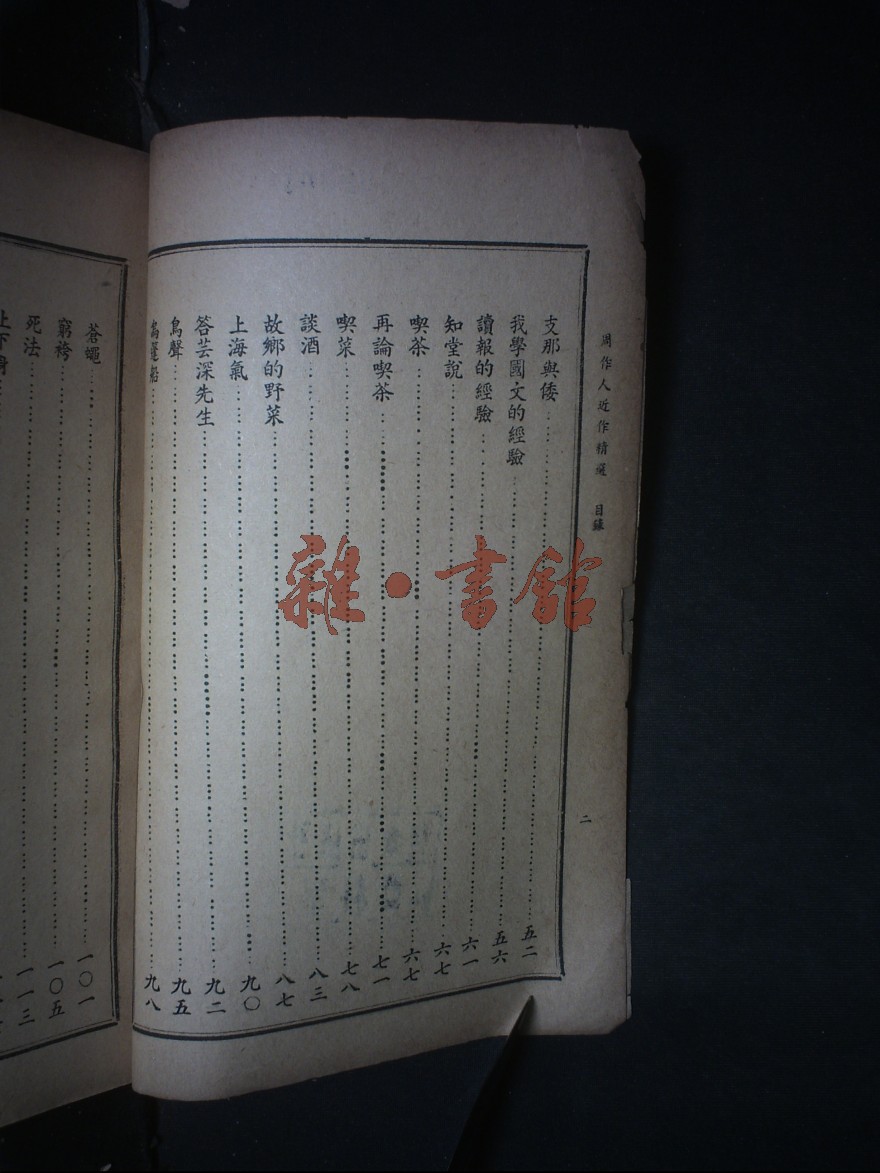 周作人近作精選 目錄 二
支那與倭 五二
我學國文的經驗 五六
讀報的經驗 六一
知堂說 六七
喫茶 六七
再論喫茶 七一
喫菜 七八
談酒 八三
故鄉的野菜 八七
上海氣 九〇
答芸深先生 九二
鳥聲 九五
烏篷船 九八
蒼蠅 一〇一
窮袴 一〇五
死法 一一三
上下身
雜・書館